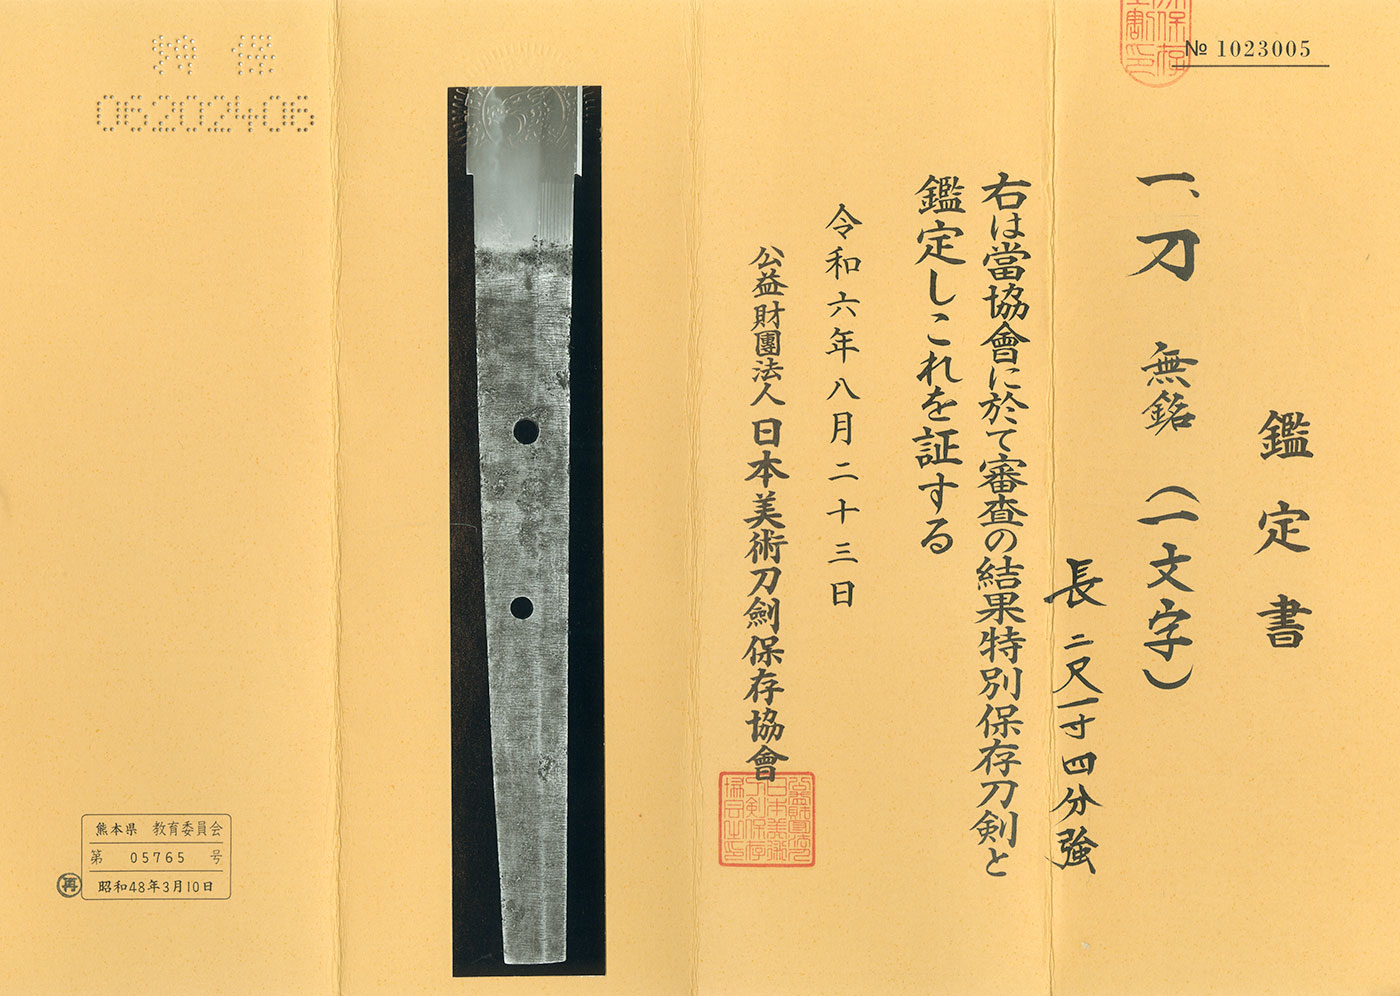 № 1023005
鑑定書
一、刀 無銘（一文字）
長 二尺一寸四分強
右は當協會に於て審査の結果特別保存刀剣と
鑑定しこれを証する
令和六年八月二十三日
公益財團法人 日本美術刀劍保存協會
06202406
熊本県 教育委員会
第 05765 号
再 昭和48年3月10日